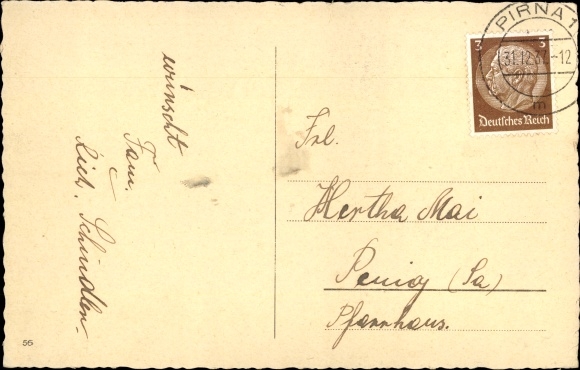 PIRNA 1
31.12.37.-12
m
3 3
Deutsches Reich
wünscht
Fam.
Rich. Schindler.
Frl.
Hertha Mai
Penig (Sa)
Pfarrhaus.
56